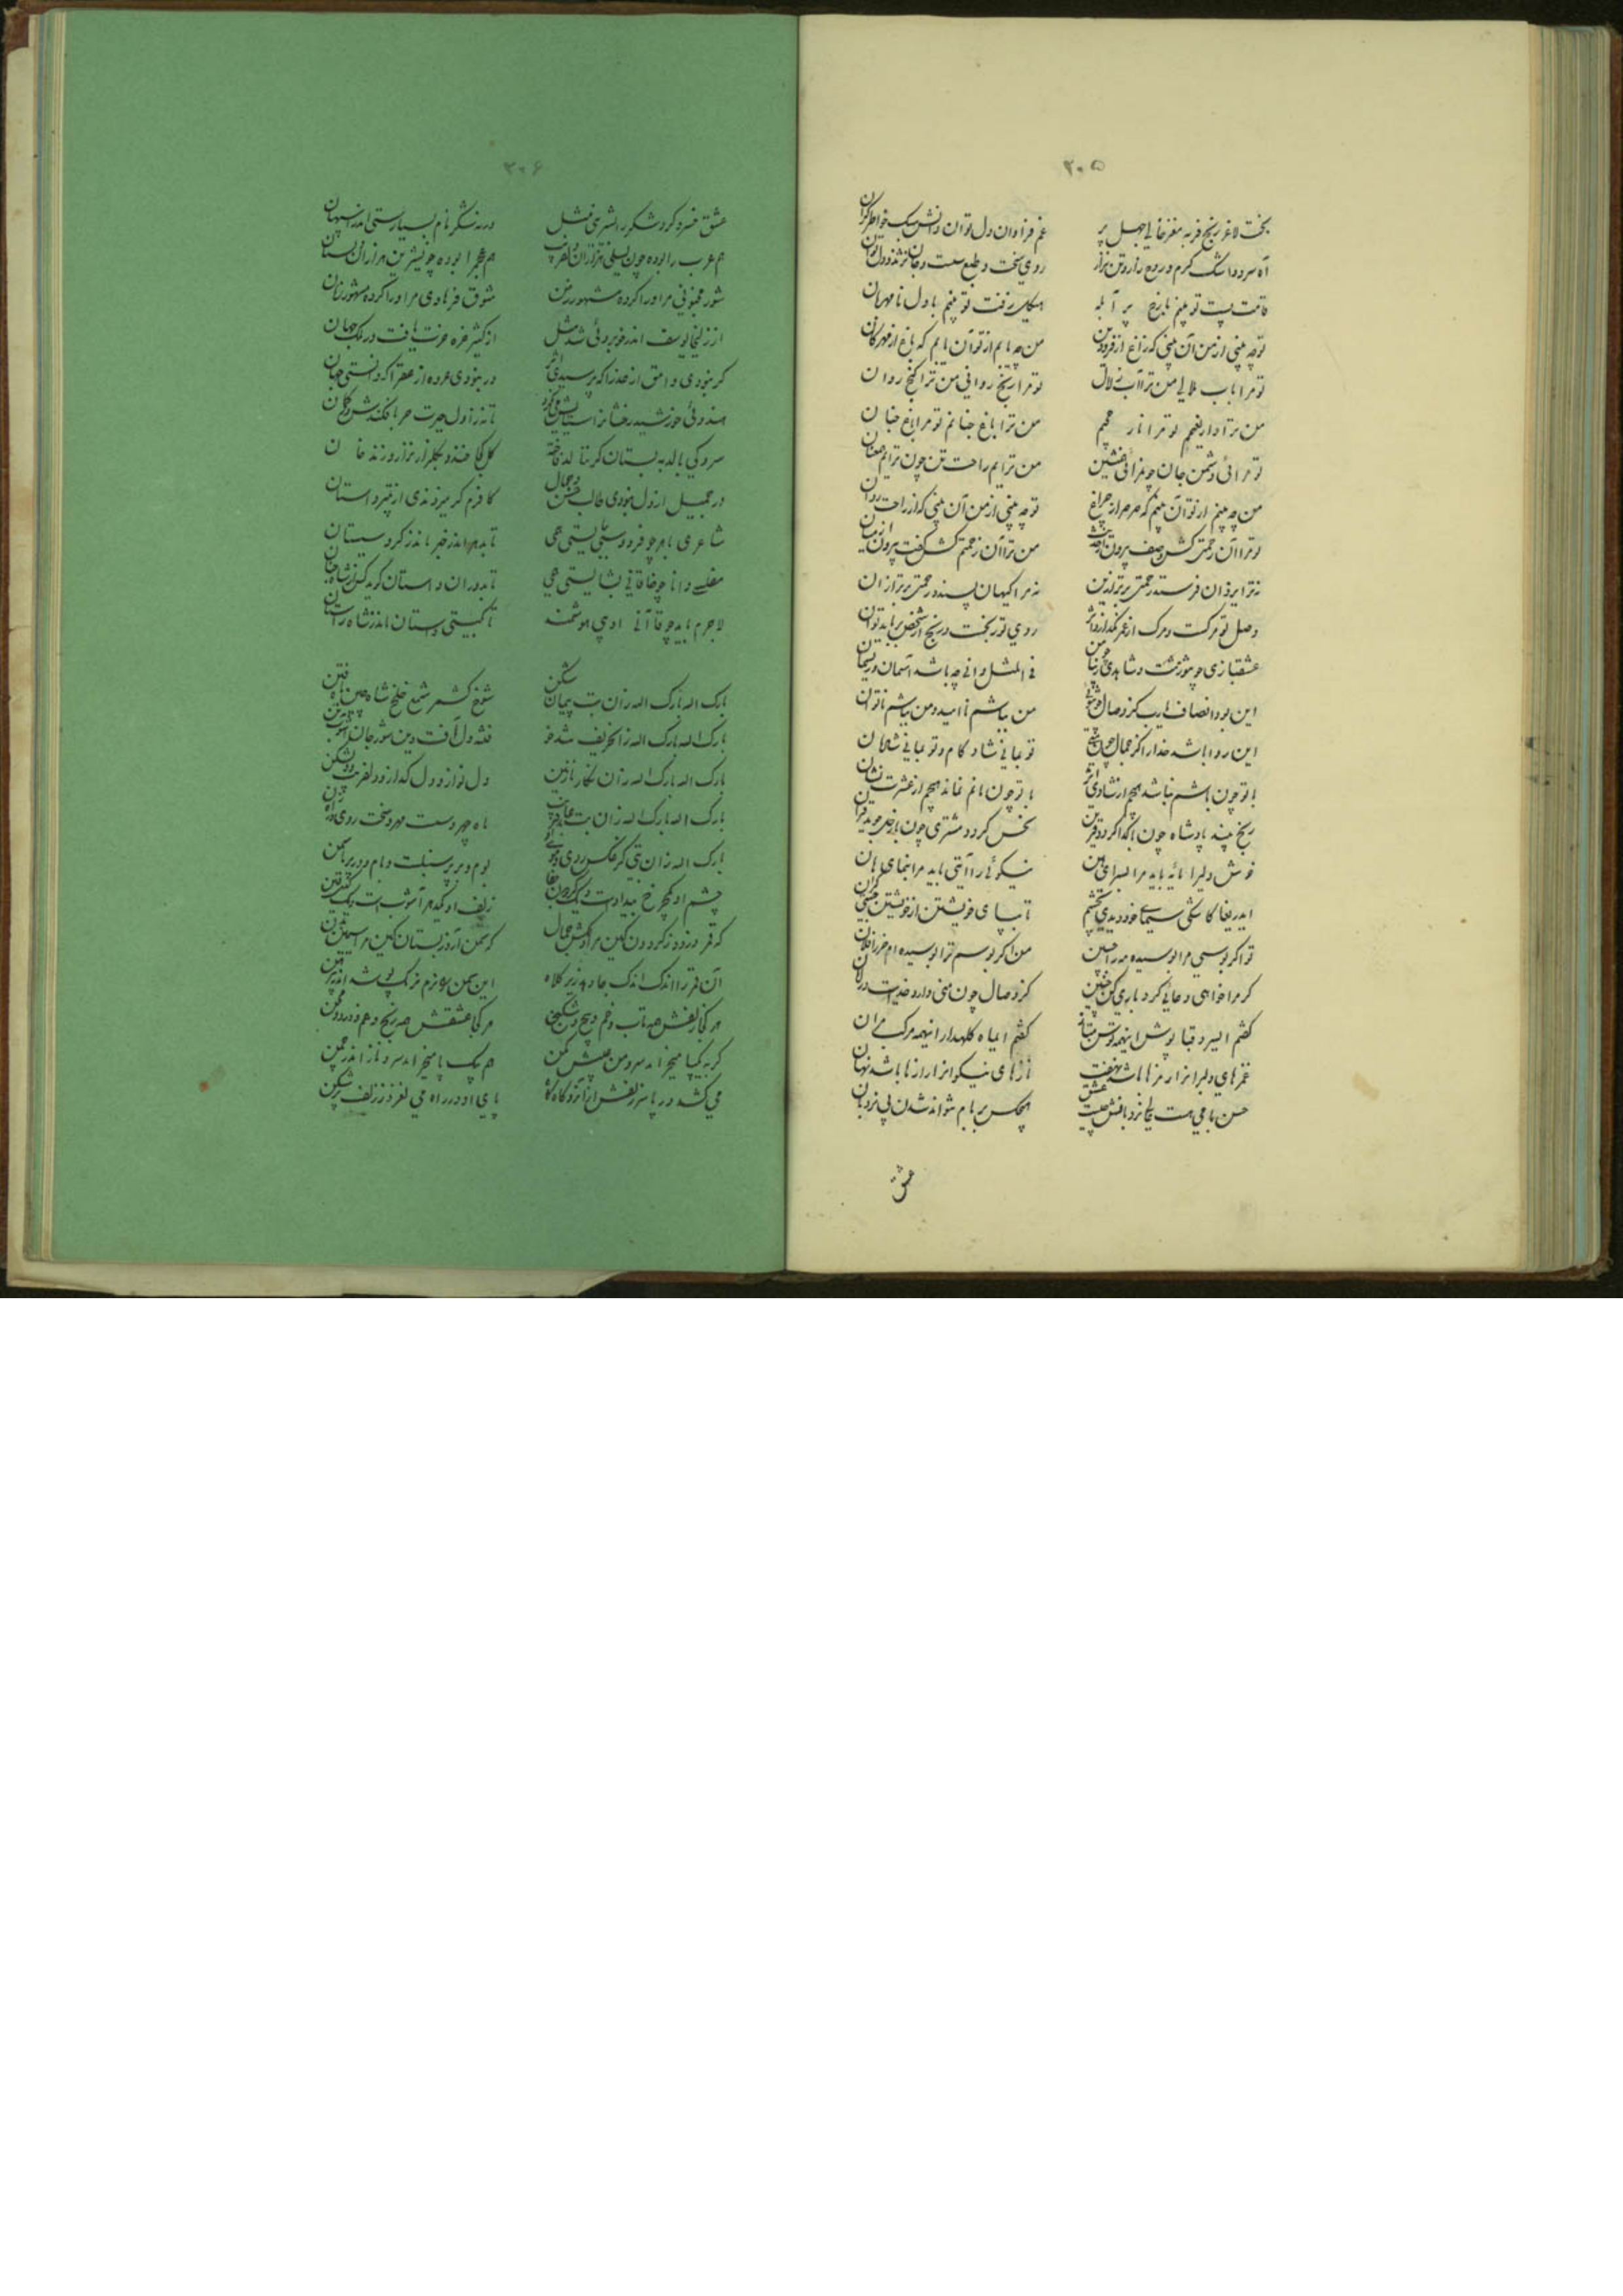 ۲۰۵
بخت لاغر رنج فربه مغز خالی جهل پر
غم فراوان دل توان دانش سبک خاطر گران
آه سرد و اشک گرم و روح زار و تن نزار
روی سخت و طبع سست و جان نژند و دل نوان
قامت پست تو بینم با رخ پر آبله
هیکل زفت تو بینم با دل نامهربان
تو چه بینی از من آن بینی که زاغ از فرودین
من چه یابم از تو آن یابم که باغ از مهرگان
تو مرا باب ملالی من ترا آب زلال
تو مرا رنج روانی من ترا گنج روان
من ترا دار نعیم تو مرا نار جحیم
من ترا باغ جنانم تو مرا داغ جنان
تو مرائی دشمن جان چو مرائی همنشین
من ترایم راحت تن چون ترایم
من چه بینم از تو آن بینم که صرصر از چراغ
تو چه بینی از من آن بینی که از راحت روان
تو ترا آن رحمتی کش وصف بیرون از حدیث
من ترا آن زحمتم کش گفت بیرون از بیان
نه ترا یزدان فرستد رحمتی برتر ازین
نه مرا کیهان پسندد زحمتی برتر از آن
وصل تو مرگست و مرگ از عمر نگذارد اثر
روی تو رنجست و رنج از شخص برباید توان
عشقبازی چو تو زشت و شاهدی زیبا چو من
فی المثل دانی چه باشد آسمان و ریسمان
این بود انصاف یارب کز وصال چون توئی
من بباشم ناامید و من بباشم ناتوان
این روا باشد خدا را کز جمال چون منی
تو بمانی شادکام و تو بمانی شادمان
با تو چون باشم نباشد هیچم از شادی اثر
با تو چون مانم نماند هیچم از عشرت نشان
رنج بیند پادشاه چون با گدا گردد قرین
نحس گردد مشتری چون با زحل جوید قران
خوش دلیرا مایه باید مر السرای هین
نیکوئی را آیتی باید مرا بنمای هان
ایدریغا کاشکی سیمای خود دیدی بچشم
تا بپای خویشتن از خویشتن جستی کران
تو اگر بوسی مرا بوسیده مه را جبین
من اگر بوسم ترا بوسیده ام خرس را فلان
گر مرا خواهی دعائی کرد باری کن چنین
کز وصال چون منی دارد خدایت در امان
گفتم ای سرو قبا پوش اینهمه توسن متاز
گفتم ای ماه کله دار اینهمه مرکب مران
غمزهای دلبرانرا رمزها باشد نهفت
نازهای نیکوانرا رازها باشد نهان
حسن بامی هست عالی نردبانش چیست عشق
هیچکس بر بام نتواند شدن بی نردبان
عشق
۲۰۶
عشق خسرو کرد شکر را بشیرینی مثل
ورنه شکر نام بسیارستی اندر اصفهان
هم عرب را بوده چون لیلی هزاران دلفریب
هم عجم را بوده چون شیرین هزاران دلستان
شور مجنونی مر او را کرده مشهور زمن
شوق فرهادی مر او را کرده مشهور زمان
از زلیخا یوسف اندر خوبروئی شد مثل
از کثیر عزه عزت یافت در ملک جهان
گر نبودی وامق از عذرا که پرسیدی اثر
ور نبودی عروه از عفرا که دانستی نشان
هندوئی خورشید رخشانرا ستایش می کند
تا نه از اول حیرت حربا فکندش در گمان
سرو کی بالد به بستان گر ننالد فاخته
گل کجا خندد بگلزار ار نزارد زندخوان
در جمیل از دل نبودی طالب حسن و جمال
کافرم گر میزدندی از بثینه داستان
شاعری باهر چو فردوسی ببایستی همی
تا بدهر اندر خبر ماند ز گرد سیستان
مفلسی دانا چو خاقانی بشایستی همی
تا بدوران داستان گوید کس از شاه اخستان
لاجرم باید چو قاآنی ادیبی هوشمند
تا بگیتی داستان ماند ز شاه راستان
بارک الله بارک الله زان بت پیمان شکن
شوخ کشمر شمع خلخ شاه چین ماه ختن
بارک الله بارک الله زان حریف شوخ
فتنه دل آفت دین شور جان آشوب تن
بارک الله بارک الله زان نگار نازنین
دل نواز و دل گداز و دلفریب و دلشکن
بارک الله بارک الله زان بت
ماه چهر و سست مهر و سخت روی و
بارک الله زان بتی کز عکس روی و موی او
بوم و بر پر سنبلست و بام و در پر یاسمن
چشم او یکچرخ بیداد است و یک گردون جفا
زلف او یکدهر آشوب است و یک گیتی فتن
که قمر دزدد ز گردون کاین مرا رخش جمال
که سمن آرد ز بستان کاین مرا سیمین بدن
آن قمر را اندک اندک جا دهد زیر کلاه
این سمن را نرم نرمک پوشد اندر پیرهن
هر کجا زلفش همه تاب و خم و پیچ و شکنج
هر کجا عشقش همه رنج و غم و درد و محن
گر به یکپا میخرامد سرو من عیبش مکن
هم بیک پا میخرامد سرو ناز اندر چمن
می کشد در پا سر زلفش از آنرو گاه گاه
پای او در راه می لغزد ز زلف پر شکن